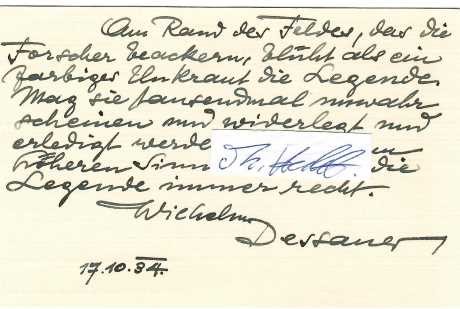 Am Rand des Feldes, das die
Forscher beackern, blüht als ein
farbiges Unkraut die Legende.
Mag sie tausendmal unwahr
scheinen und widerlegt und
erledigt werde
höheren Sinn die
Legende immer recht.
Wilhelm
Dessauer
17.10.34.